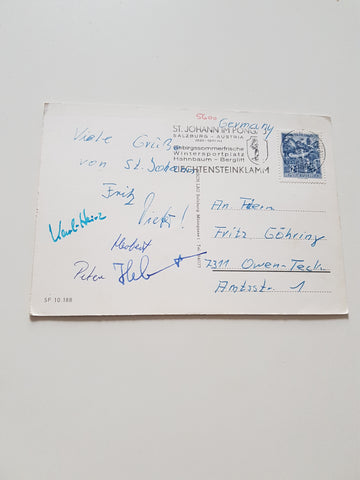 5600
Germany
ST. JOHANN IM PONG.
SALZBURG - AUSTRIA
Gebirgssommerfrische
Wintersportplatz
Hahnbaum - Berglift
LIECHTENSTEINKLAMM
Viele Grüße
von St. Johann
Fritz
Karl-Heinz
Herbert
Peter
An Herrn
Fritz Göhring
7311 Owen-Teck
Amtsstr. 1
SP 10.188